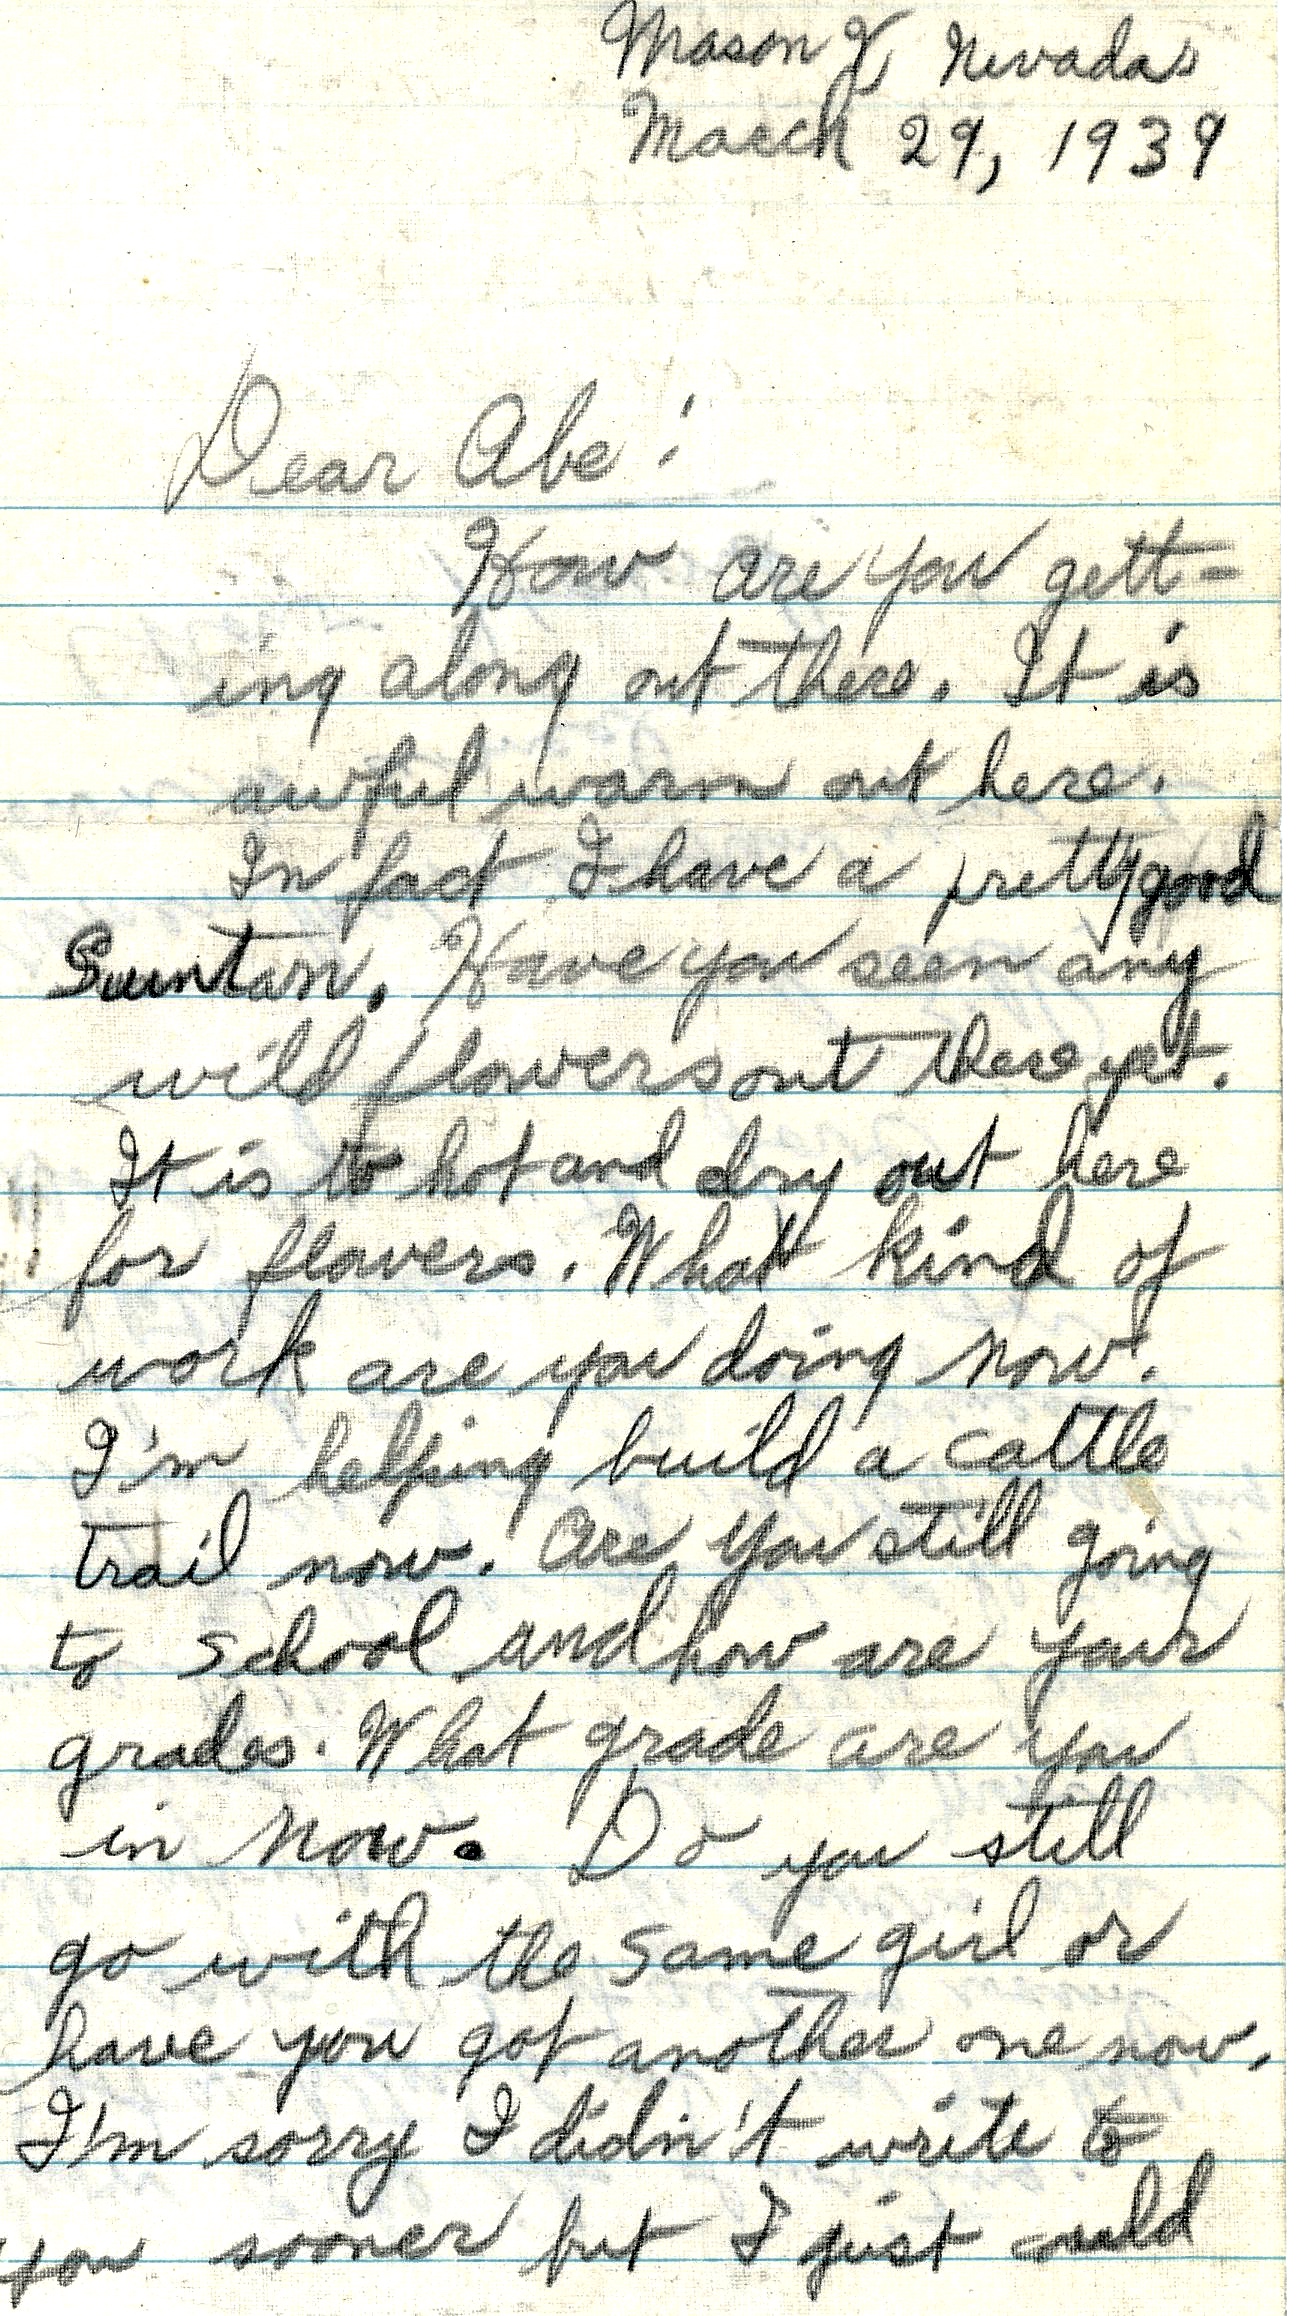 Mason V Nevada
March 29, 1939
Dear Abe:
How are you gett=
ing along out there. It is
awful warm out here.
In fact I have a pretty good
Suntan. Have you seen any
wild flowers out there yet.
It is to hot and dry out here
for flowers. What kind of
work are you doing now.
I'm helping build a cattle
trail now. Are you still going
to school and how are your
grades. What grade are you
in now. Do you still
go with the same girl or
have you got another one now.
I'm sorry I didn't write to
you sooner but I just could